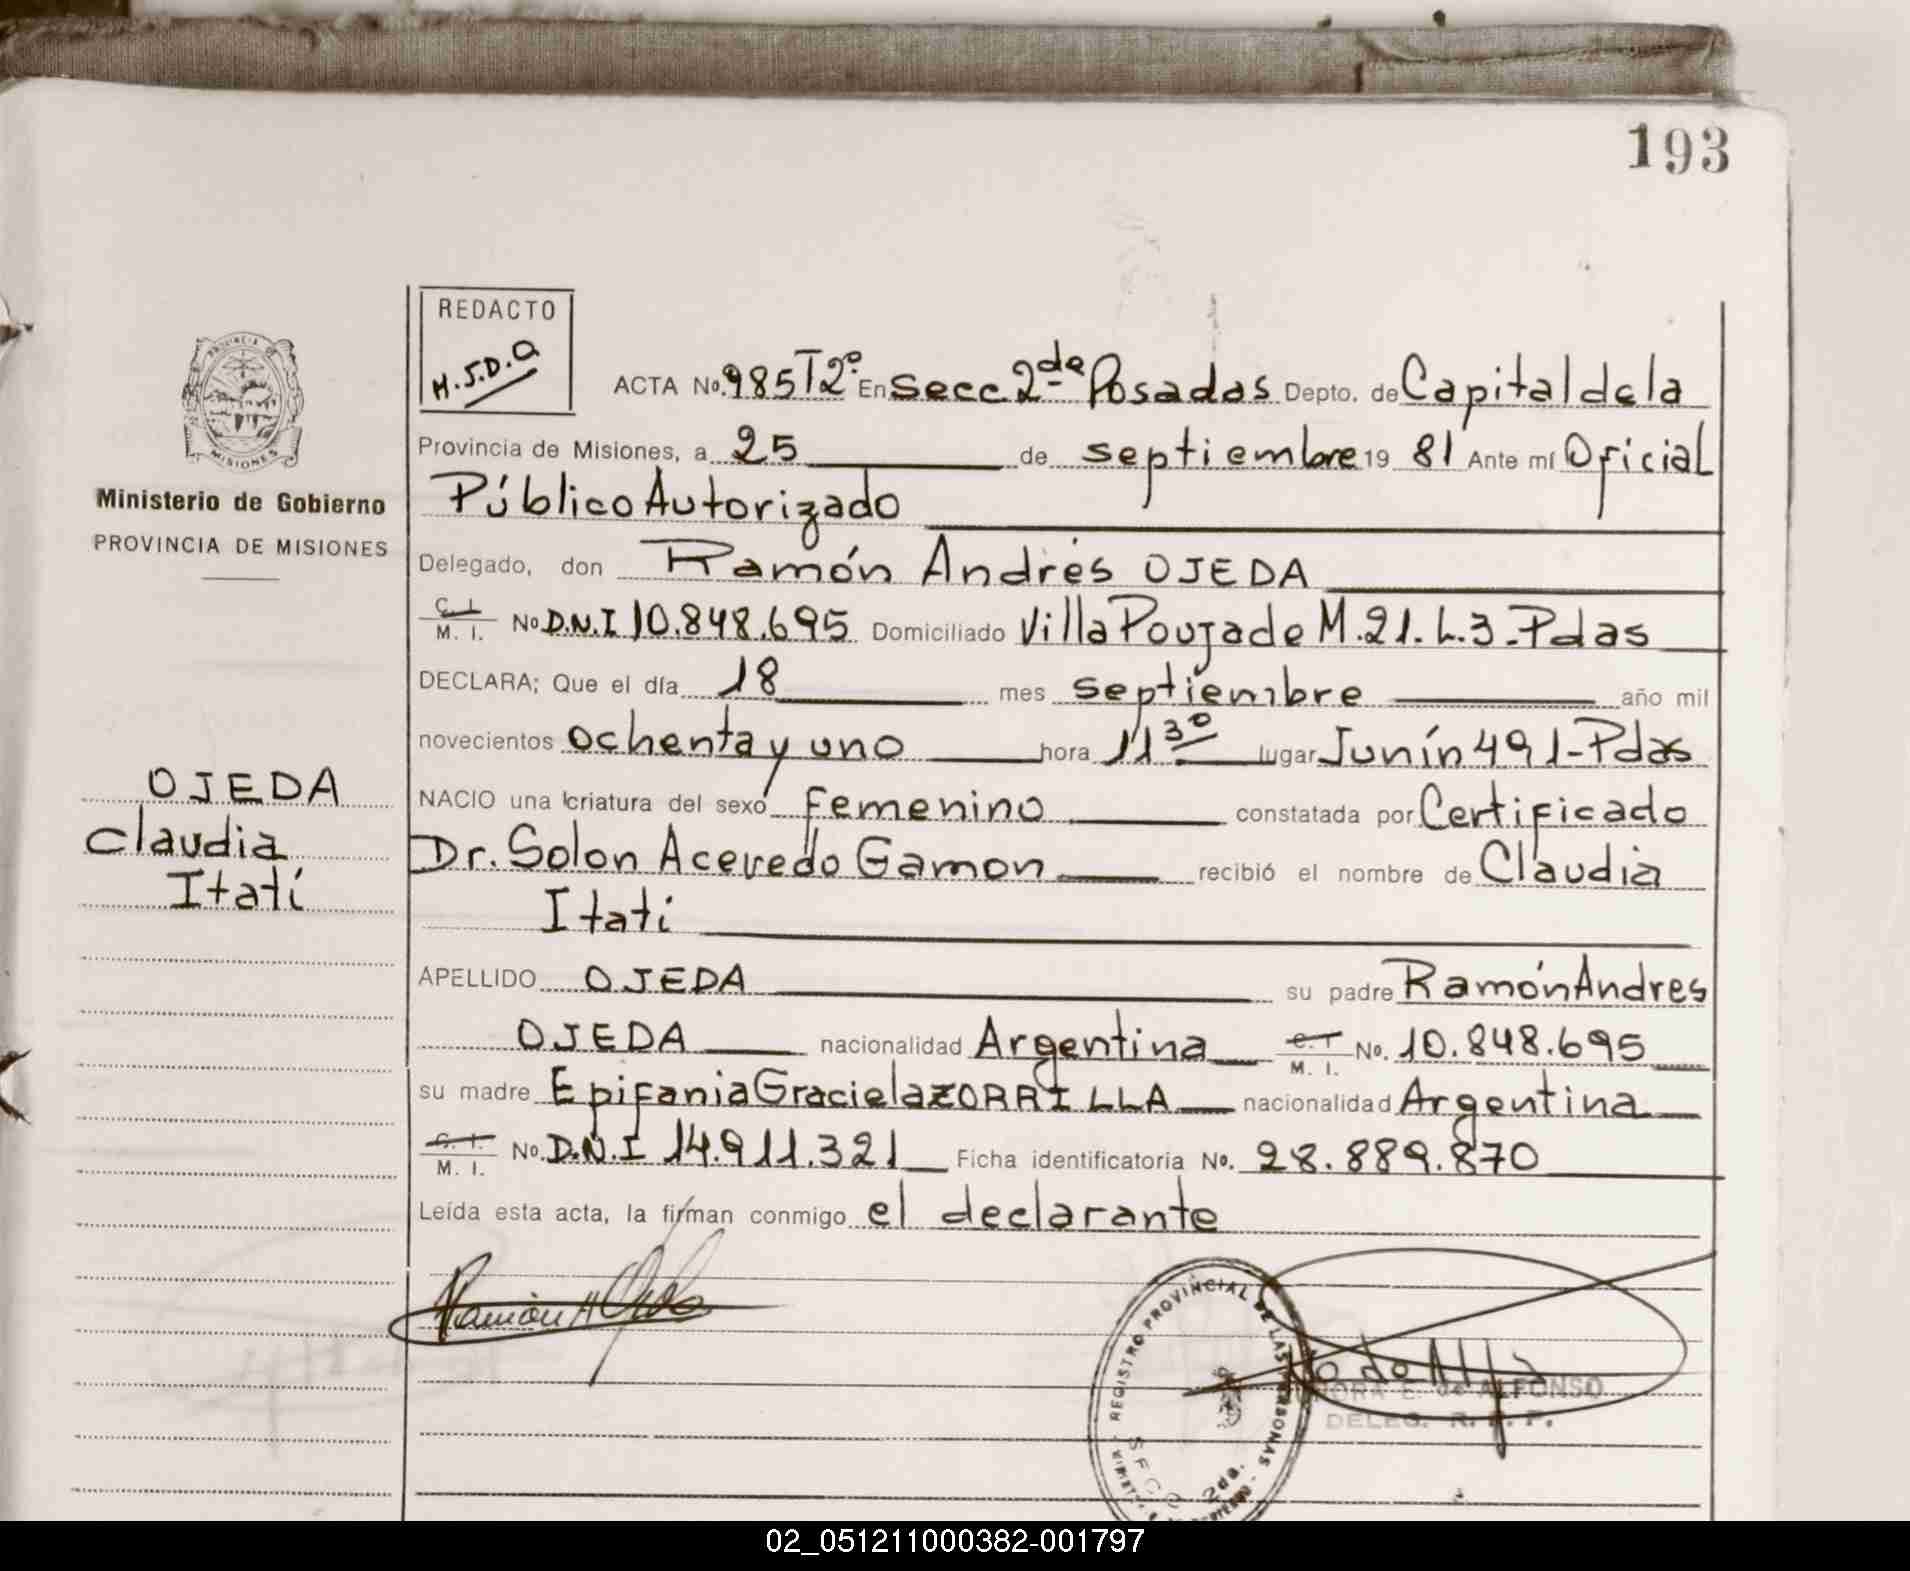 193
REDACTO
H.J.D.A
ACTA No. 985 T2º En Secc. 2da Posadas Depto. de Capital de la
Provincia de Misiones, a 25 de septiembre 19 81 Ante mí Oficial
Público Autorizado
Delegado, don Ramón Andrés OJEDA
C. I.
M. I. No D.N.I 10.848.695 Domiciliado Villa Poujade M.21.L.3-Pdas
DECLARA; Que el día 18 mes septiembre año mil
novecientos ochenta y uno hora 11 30 lugar Junín 491-Pdas
NACIO una criatura del sexo femenino constatada por Certificado
Dr. Solon Acevedo Gamon recibió el nombre de Claudia
Itatí
APELLIDO OJEDA su padre Ramón Andres
OJEDA nacionalidad Argentina C. I. M. I. No. 10.848.695
su madre Epifania Graciela ZORRILLA nacionalidad Argentina
C. I.
M. I. No. D.N.I 14.911.321 Ficha identificatoria No. 28.889.870
Leída esta acta, la firman conmigo el declarante
PROVINCIA DE
MISIONES
Ministerio de Gobierno
PROVINCIA DE MISIONES
OJEDA
Claudia
Itatí
Ramón A Ojeda
REGISTRO PROVINCIAL DE LAS PERSONAS
SECC 2da.
E. de ALFONSO
DELEG. R. P. P.
02_051211000382-001797